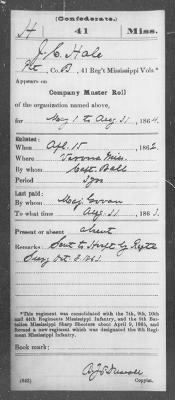 (Confederate.)
H 41 Miss.
J. C. Hale
Pvt, Co. B, 41 Reg't Mississippi Vols.*
Appears on
Company Muster Roll
of the organization named above,
for May 1 to Aug 31, 1864.
Enlisted:
When Apl. 15, 1862
Where Verona Miss.
By whom Capt. Ball
Period 3 yrs
Last paid:
By whom Maj. Govan
To what time Aug 31, 1863.
Present or absent absent
Remarks: Sent to Hospt by Regtl
Surg Oct. 8 1863.
*This regiment was consolidated with the 7th, 9th, 10th
and 44th Regiments Mississippi Infantry, and the 9th Bat-
talion Mississippi Sharp Shooters about April 9, 1865, and
formed a new regiment which was designated the 9th Regi-
ment Mississippi Infantry.
Book mark:
(642) Copyist.